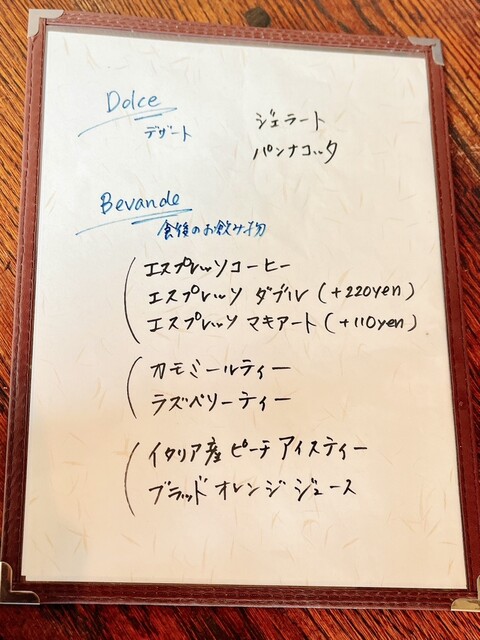 Dolce
デザート
ジェラート
パンナコッタ
Bevande
食後のお飲み物
エスプレッソコーヒー
エスプレッソ ダブル (+220yen)
エスプレッソ マキアート (+110yen)
カモミールティー
ラズベリーティー
イタリア産 ピーチ アイスティー
ブラッド オレンジ ジュース